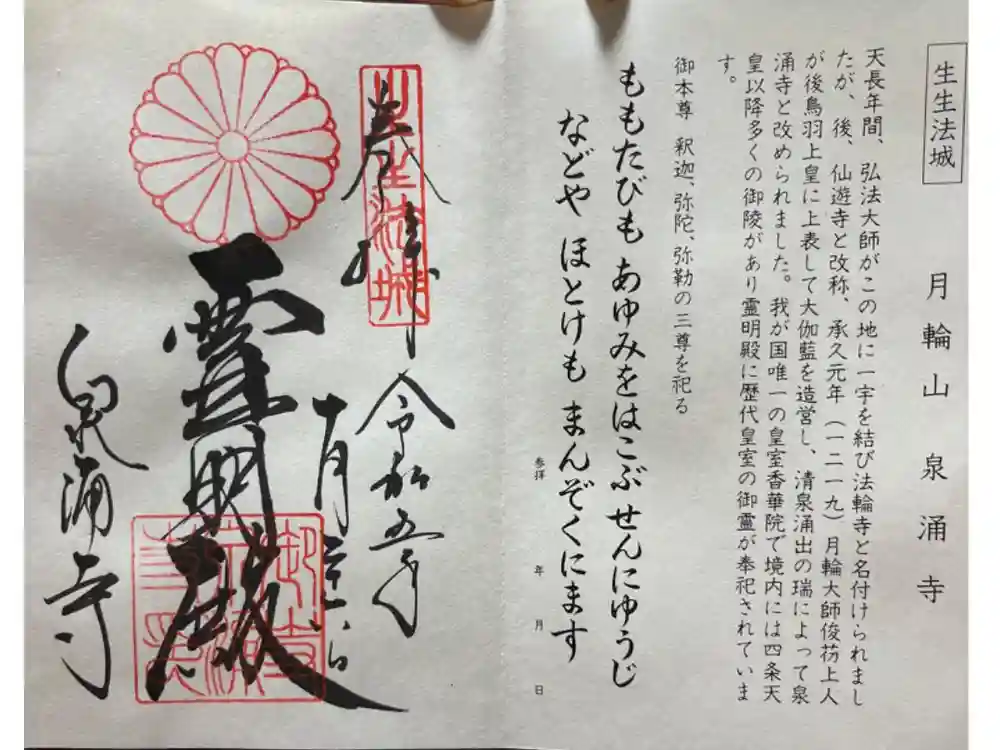 生生法城
月輪山 泉涌寺
天長年間、弘法大師がこの地に一宇を結び法輪寺と名付けられまし
たが、後、仙遊寺と改称、承久元年(一二一九)月輪大師俊芿上人
が後鳥羽上皇に上表して大伽藍を造営し、清泉涌出の瑞によって泉
涌寺と改められました。我が国唯一の皇室香華院で境内には四条天
皇以降多くの御陵があり霊明殿に歴代皇室の御霊が奉祀されていま
す。
御本尊 釈迦、弥陀、弥勒の三尊を祀る
ももたびも あゆみをはこぶ せんにゆうじ
などや ほとけも まんぞくにます
参拝 年 月 日
奉拝
生生法城
令和五年
十月
霊明殿
泉涌寺